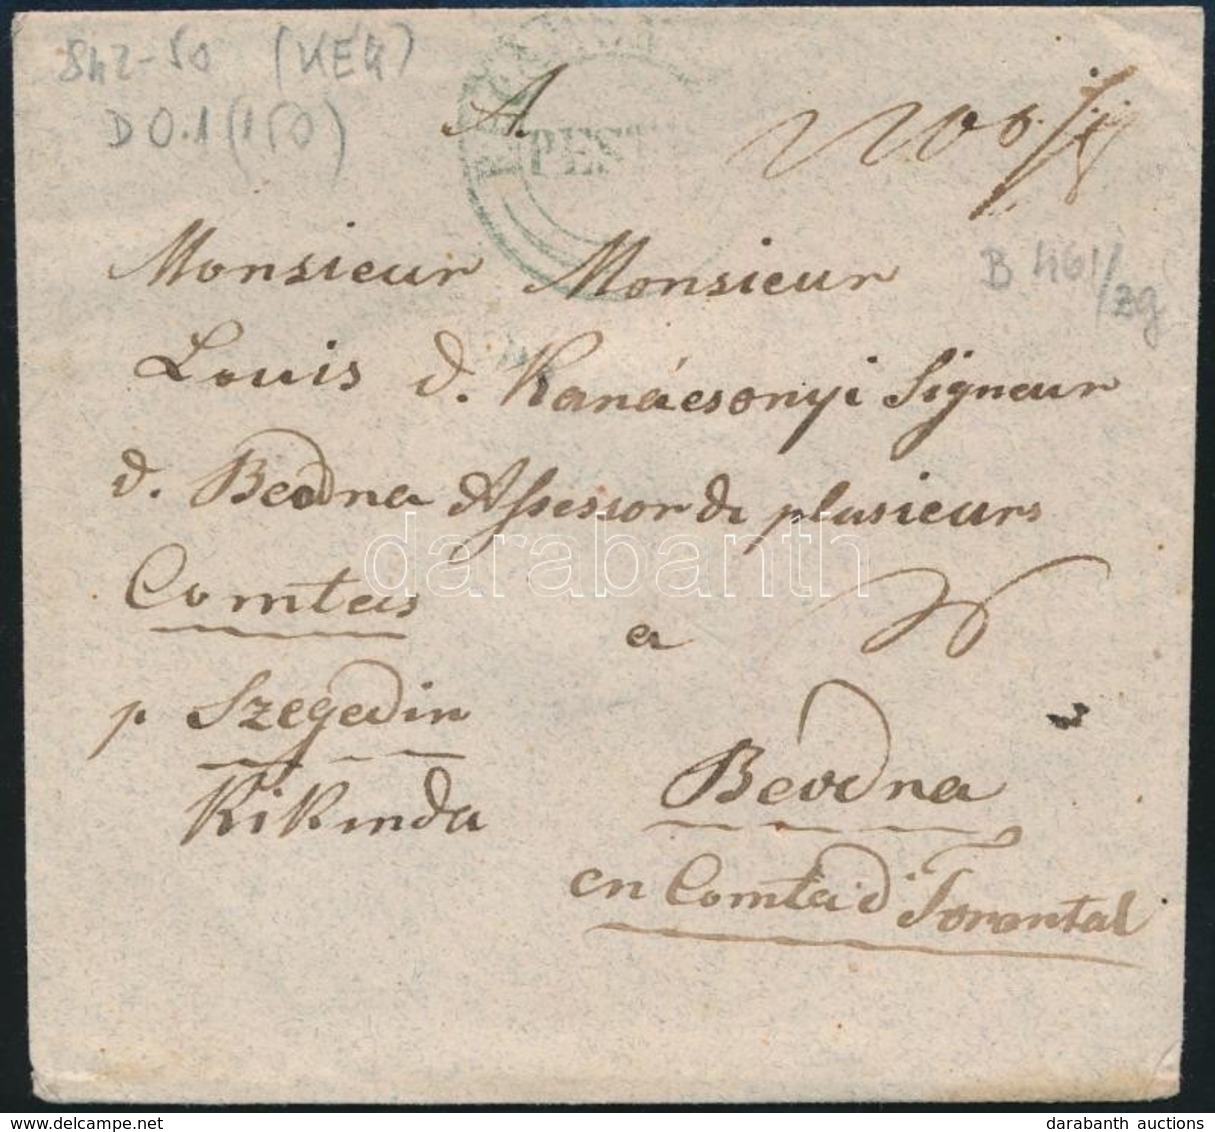 842-50 (KÉK)
D 0.1 (150)
PEST
A.
B 461/
Monsieur Monsieur
Louis d. Karácsonyi Signeur
d. Beodra Assessor de plusieurs
Comtas
a
p Szegedin
Kikinda
Beodra
en Comta d Torontal
darabanth
darabanth auctions